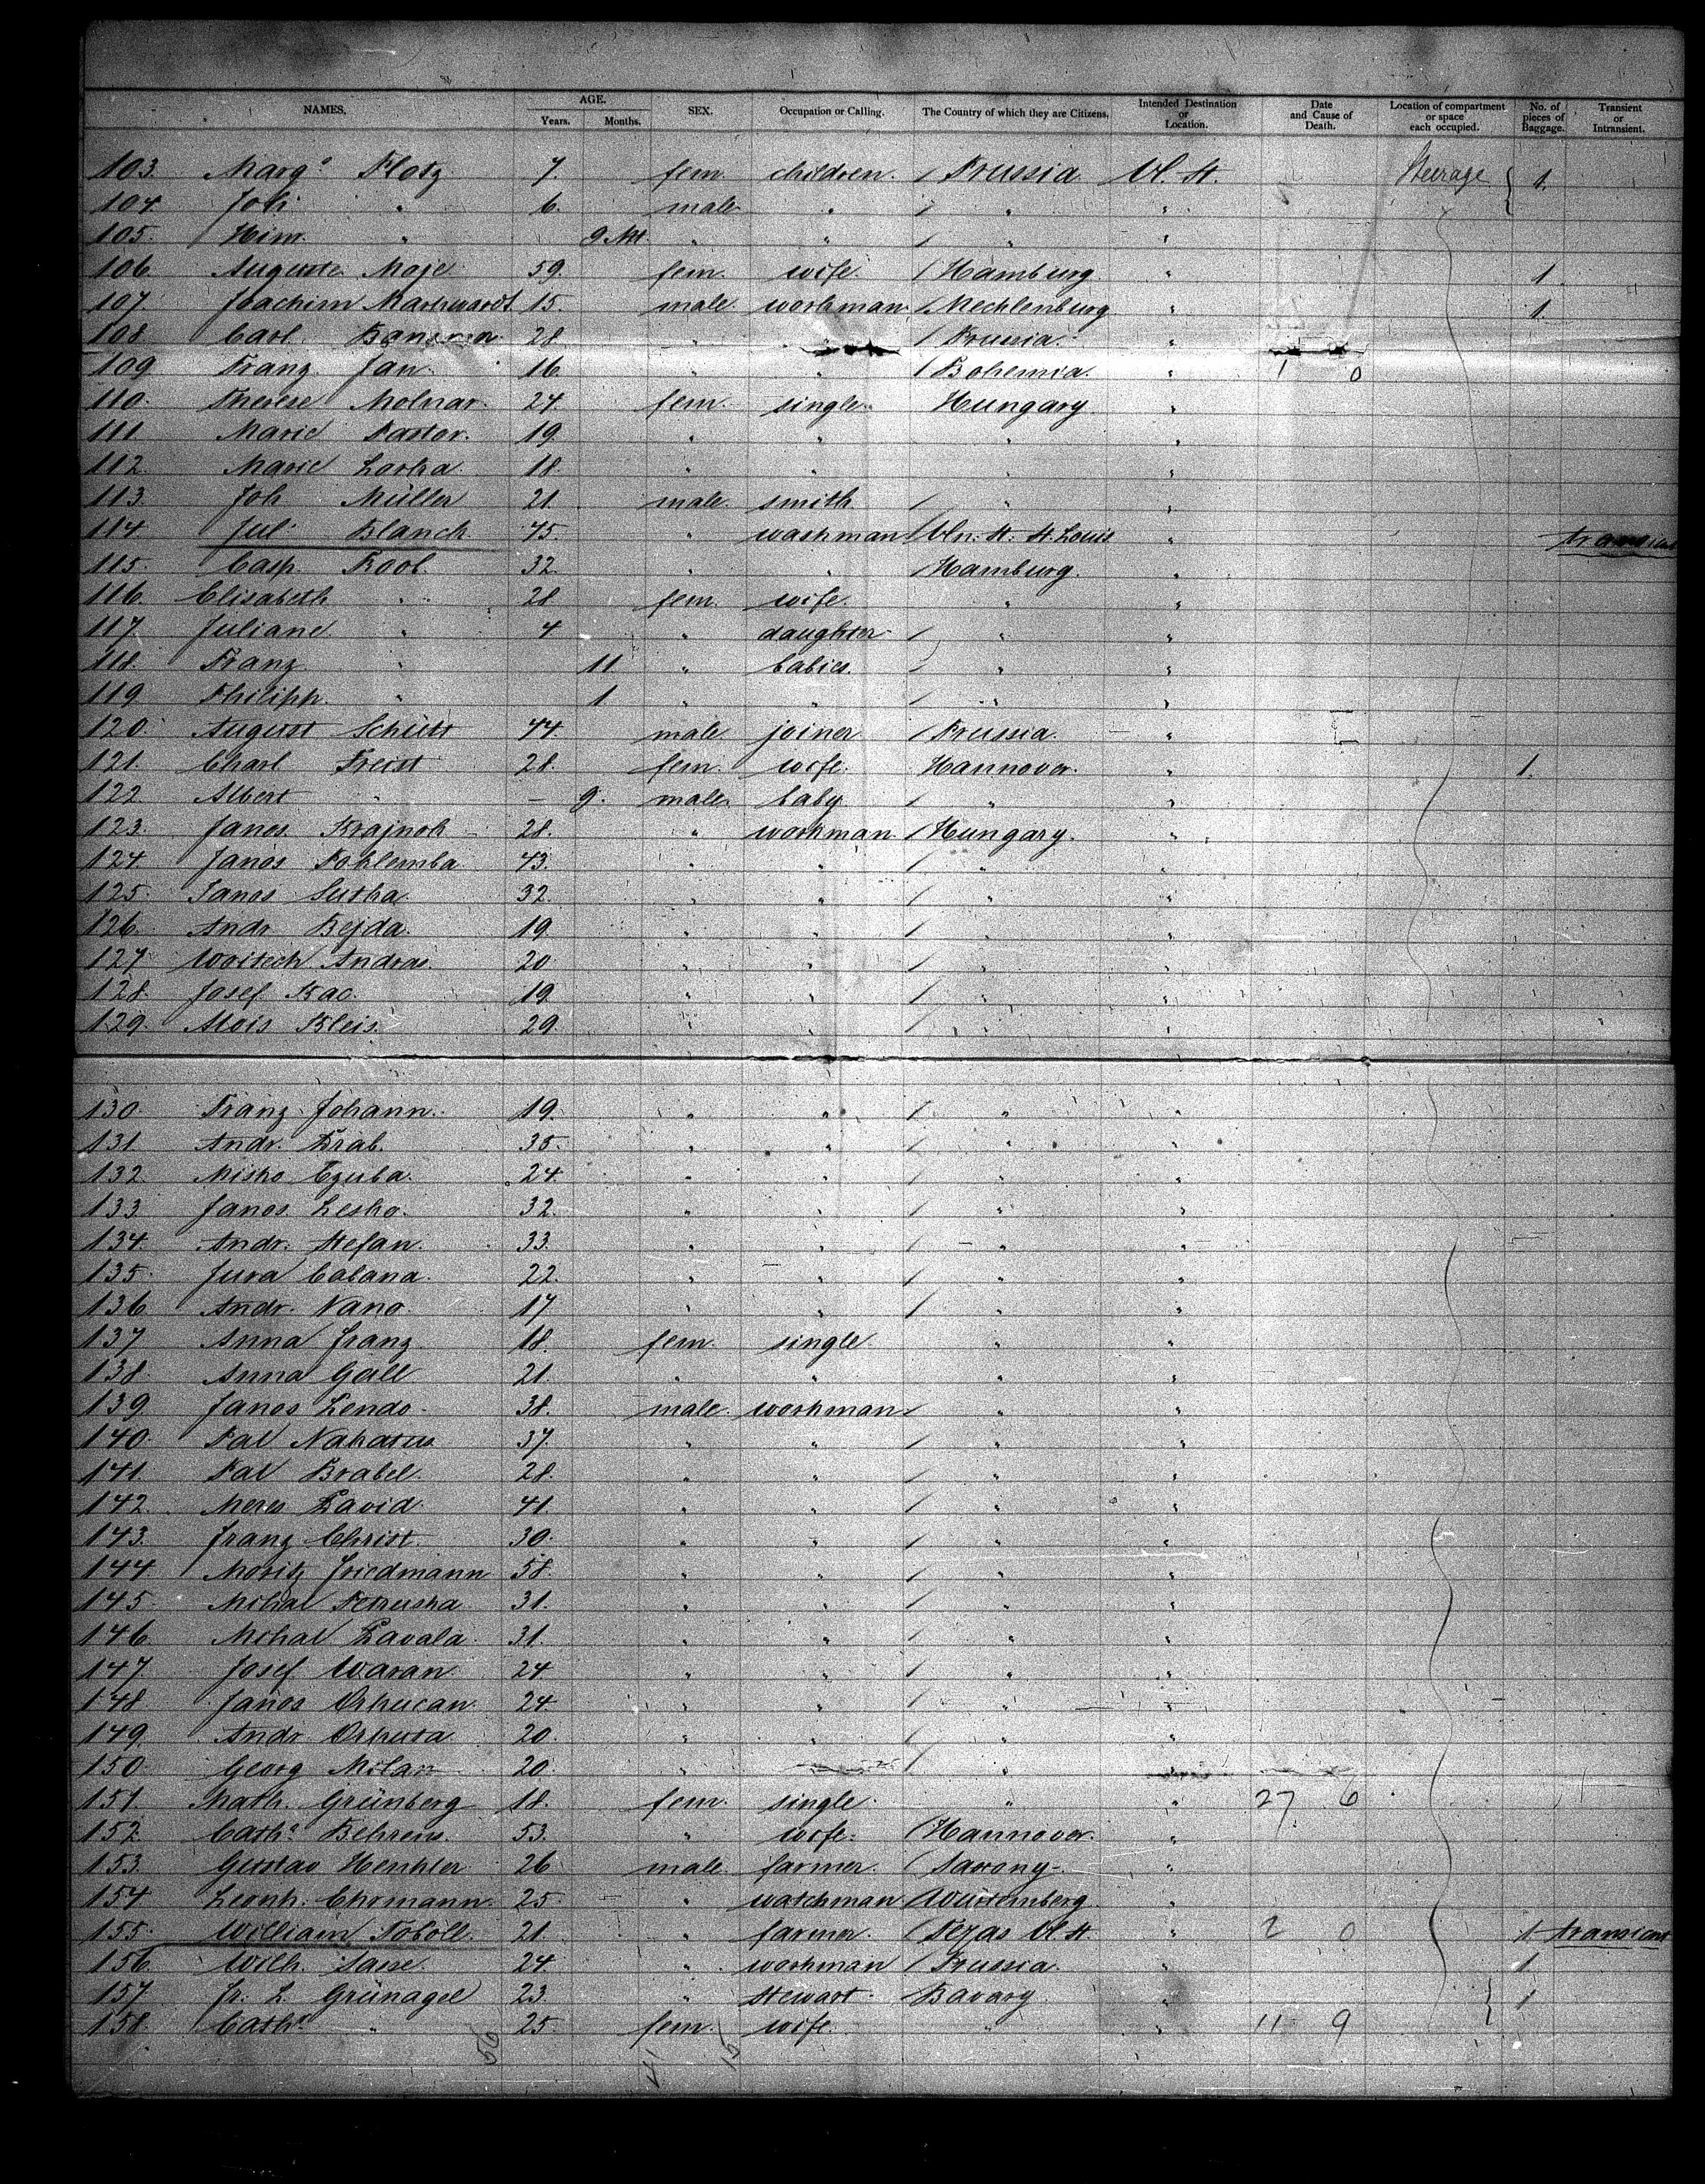 NAMES. AGE. Years. Months. SEX. Occupation or Calling. The Country of which they are Citizens. Intended Destination or Location. Date and Cause of Death. Location of compartment or space each occupied. No. of pieces of Baggage. Transient or Intransient.
103. Marg.a Plotz 7 fem. children. / Prussia U. St. Steerage 1.
104. Joh. " 6. male " / " "
105. Hinr. " 9 Mt. " " / " "
106. Auguste Moje 59. fem. wife. / Hamburg " 1.
107. Joachim Markwardt 15. male. workman / Mecklenburg " 1.
108. Carl 28. " " / Prussia. "
109 Franz Jan. 16. " " / Bohemia. " 1 0
110. Therese Molnar. 24. fem. single. Hungary "
111. Marie Pastor. 19. " " " "
112. Marie Loska 18. " " " "
113. Joh Müller 21. male. smith. / " "
114 Jul. Blanck 45. " workman / Un. St. St. Louis " transient
115. Casp. Kool. 32. " " Hamburg. "
116. Elisabeth " 28 fem. wife. " "
117 Juliane " 4 " daughter / " "
118. Franz. " 11. " babies. / " "
119 Philipp. " 1 " " / " "
120. August Schütt 44. male. joiner / Prussia. "
121. Charl Freist 28. fem. wife. Hannover. " 1.
122. Albert " — 9. male. baby / " "
123. Janos Krajnok 28. " workman. / Hungary. "
124. Janos Pohlemba 43. " " / " "
125. Janos Sutka. 32. " " / " "
126. Andr. Bejda. 19. " " / " "
127. Woitech Andras. 20 " " / " "
128. Josef Kac. 19. " " / " "
129. Alois Kleis. 29. " " / "
130. Franz Johann. 19. " " / " "
131. Andr. Krab. 35. " " / " "
132. Misko Czuba. 24. " " / " "
133 Janos Lesko. 32. " " / " "
134. Andr. Stefan. 33. " " / " "
135. Jura Cabana. 22. " " / " "
136 Andr. Nano. 17 " " / " "
137 Anna Franz 18. fem. single. " "
138. Anna Gall 21. " " " "
139 Janos Lendo. 38. male. workman / " "
140. Pal Nahatus 37. " " / " "
141. Pal Brabel. 28. " " / " "
142. Meres David 41. " " / " "
143. Franz Christ. 30. " " / " "
144 Moritz Friedmann 58. " " / " "
145. Mihal Petruska 31. " " / " "
146. Mihal Zavala. 31. " " / " "
147. Josef Waran 24 " " / " "
148. Janos Orhucan. 24. " " / " "
149. Andr. Orhuta 20. " " / " "
150. Georg Milan 20. " / " "
151. Math. Grünberg 18. fem. single. " " 27 6
152. Cath.a Behrens. 53. " wife. / Hannover. "
153. Gustav Henkler 26 male. farmer. / Saxony. "
154 Leonh. Ehrmann. 25. " watchman / Würtemberg "
155. William Toboll 21. " farmer. / Texas U St. " 2 0 1 transient
156 Wilh. Sasse. 24 " workman / Prussia. " 1
157. Fr. L. Grünagel 23 " stewart. Bavary. " 1
158. Cath.a " 25. fem. wife. " " 11 9
56 41 15